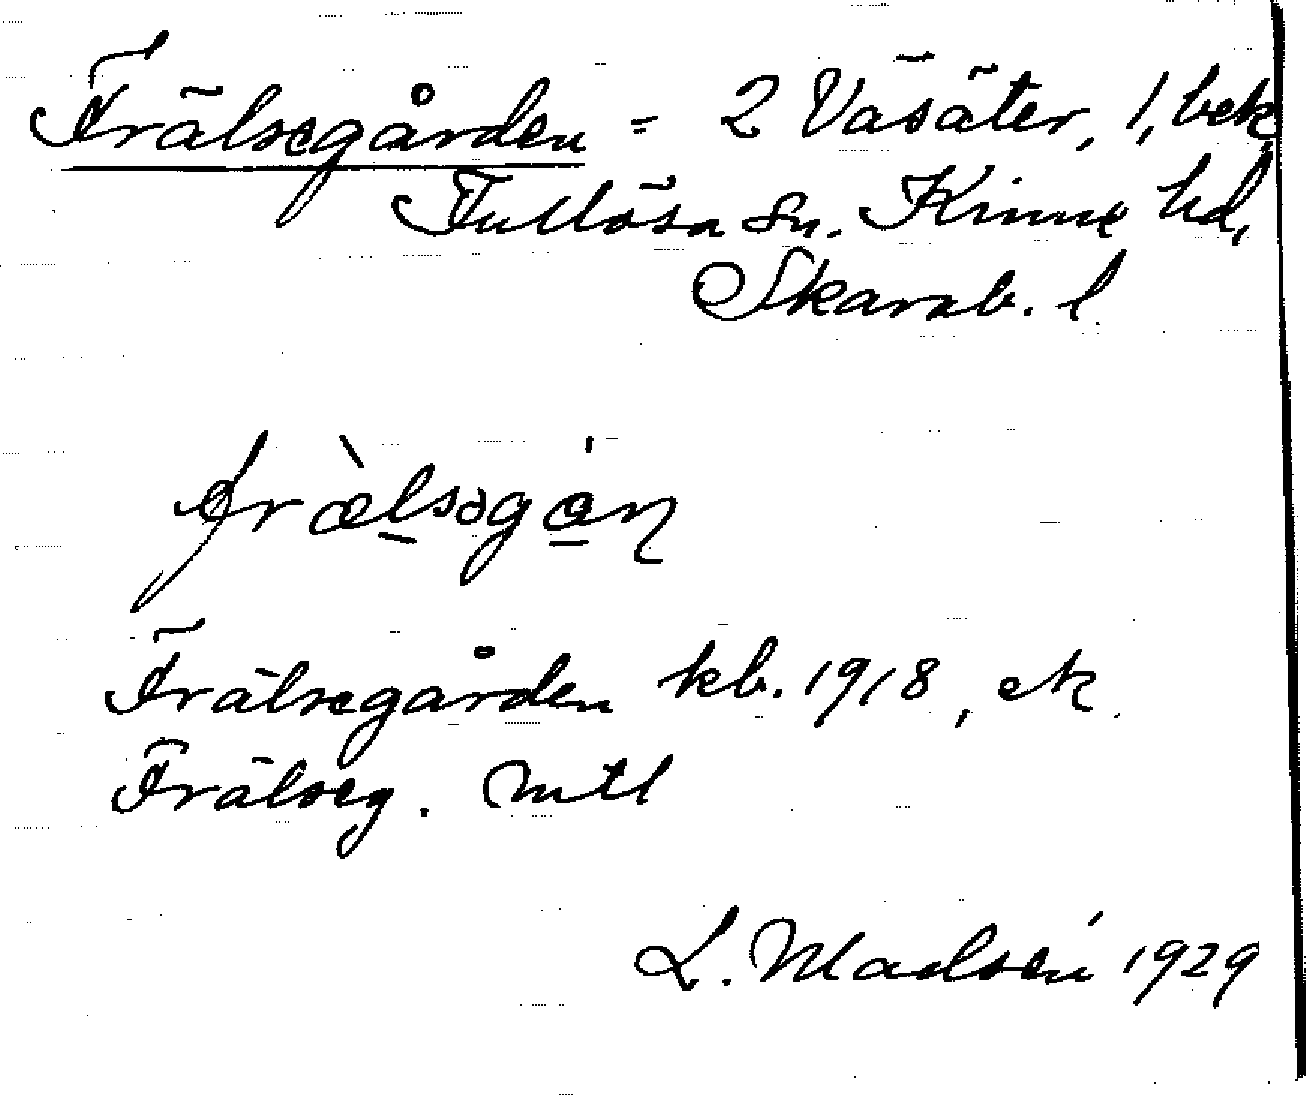 Frälsegården = 2 Väsäter, 1, bek
Fullösa sn. Kinne hd,
Skarab. l.
fræ̀lsəgán
Frälsegården kb. 1918, ek
Frälseg. mtl
L. Madsén 1929